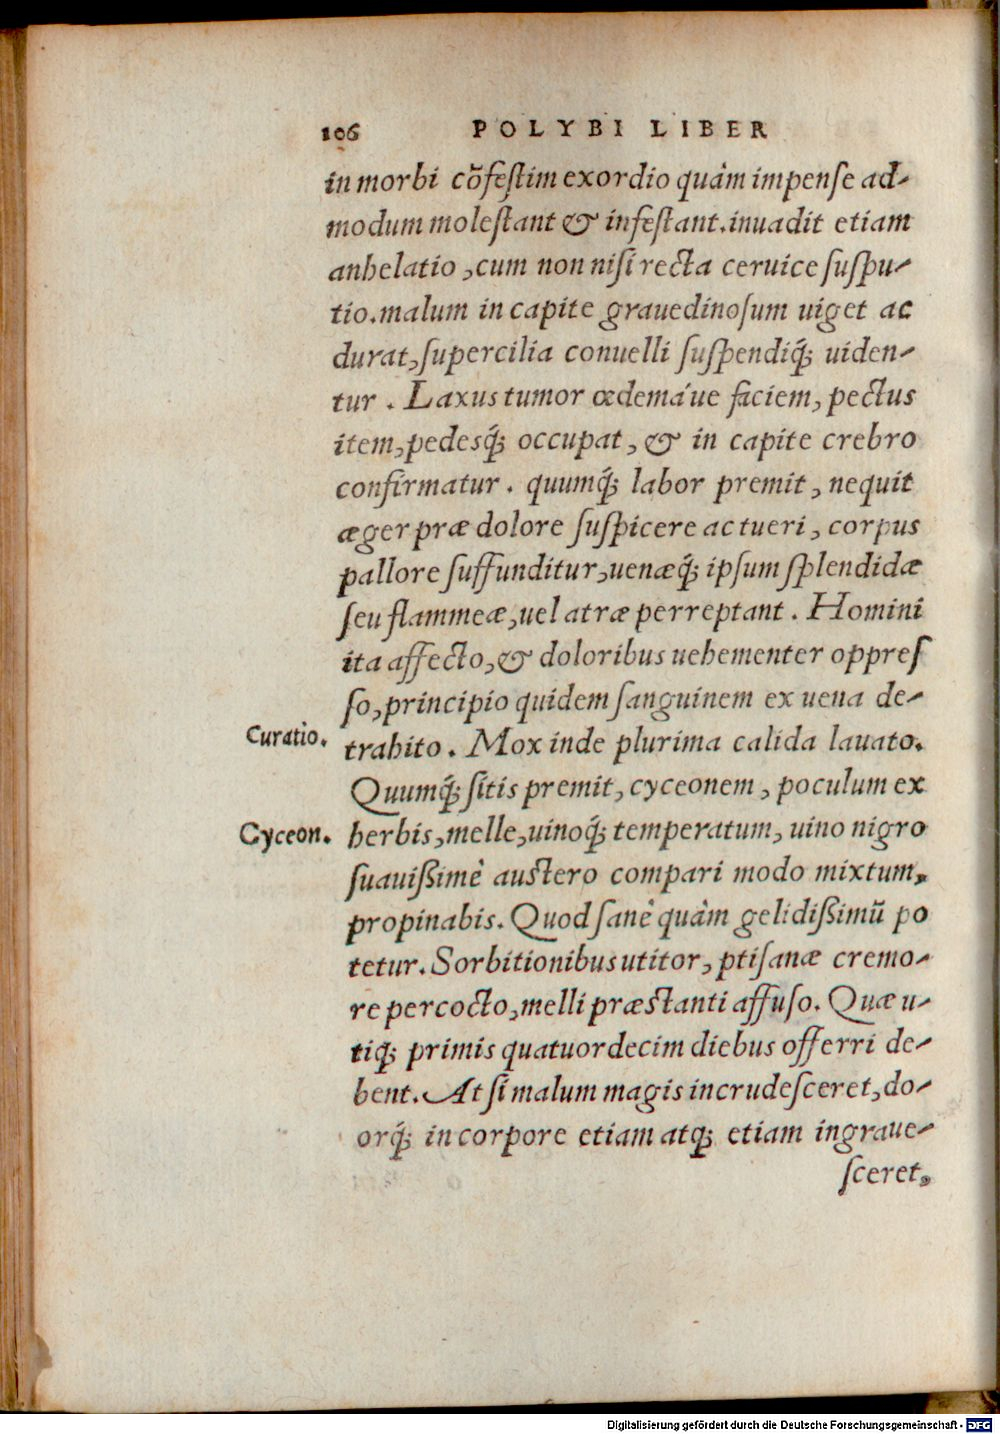 106 POLYBI LIBER
in morbi cõfestim exordio quàm impense ad-
modum molestant & infestant. inuadit etiam
anhelatio, cum non nisi recta ceruice suspu-
tio. malum in capite grauedinosum uiget ac
durat, supercilia conuelli suspendiq́; uiden-
tur. Laxus tumor œdemá'ue faciem, pectus
item, pedesq́; occupat, & in capite crebro
confirmatur. quumq́; labor premit, nequit
æger præ dolore suspicere ac tueri, corpus
pallore suffunditur, uenæq́; ipsum splendidæ
seu flammeæ, uel atræ perreptant. Homini
ita affecto, & doloribus uehementer oppres
so, principio quidem sanguinem ex uena de-
Curatio. trahito. Mox inde plurima calida lauato.
Quumq́; sitis premit, cyceonem, poculum ex
Cyceon. herbis, melle, uinoq́; temperatum, uino nigro
suauißimè austero compari modo mixtum,
propinabis. Quod sanè quàm gelidißimũ po
tetur. Sorbitionibus utitor, ptisanæ cremo-
re percocto, melli præstanti affuso. Quæ u-
tiq; primis quatuordecim diebus offerri de-
bent. At si malum magis incrudesceret, do-
orq́; in corpore etiam atq; etiam ingraue-
sceret,
Digitalisierung gefördert durch die Deutsche Forschungsgemeinschaft - DFG